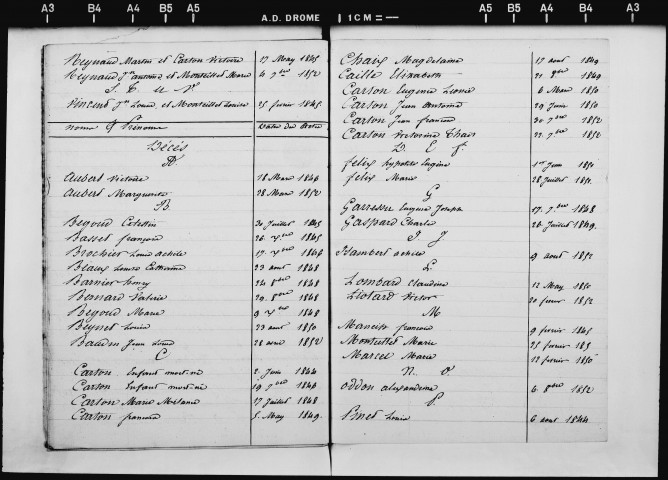 A3 B4 A4 B5 A5 A.D. DROME 1 CM = A5 B5 A4 B4 A3
Reynaud Martin et Carton Victoire 17 May 1845
Reynaud Jn antoine et Monteillet Marie 6 7bre 1852
S. T. U. V.
Vincent Jn Louis et Monteillet Louise 25 fevrier 1845
noms & Prénoms Dates des Actes
Décès
A
Aubert Victoire 18 Mars 1846
Aubert Marguerite 28 Mars 1852
B
Begoud Celestin 30 Juillet 1845
Basset françois 26 xbre 1845
Brochier Louis achile 17 xbre 1846
Beaux Louise Catherine 23 aout 1848
Barnier henry 24 8bre 1848
Bernard Valerie 29 8bre 1848
Begoud Marie 9 xbre 1848
Beynet Louise 23 aout 1850
Baudin Jean Louis 28 avril 1852
C
Carton Enfant mort-né 2 Juin 1844
Carton Enfant mort-né 19 7bre 1846
Carton Marie Melanie 17 Juillet 1848
Carton francois 5 May 1849
Chaix Magdelaine 17 aout 1849
Caille Elizabeth 21 9bre 1849
Carton Eugenie Leonie 6 Mars 1850
Carton Jean Antoine 29 Juin 1850
Carton Jean francois 30 7bre 1852
Carton Victorine Chaix 22 7bre 1852
D. E. f.
felix hypolite Eugène 1er Juin 1850
felix Marie 28 Juillet 1851
G
Garresse Eugene Joseph 17 7bre 1848
Gaspard Charles 26 Juillet 1849
I J
Isambert achile 9 aout 1852
L
Lombard Claudine 12 May 1850
Liotard Victor 20 fevrier 1852
M
Mancip francois 9 fevrier 1845
Monteillet Marie 25 fevrier
Marcel Marie 12 fevrier 1850
N. O.
Oddon alexandrine 6 8bre 1852
P.
Pinet Louise 6 aout 1844